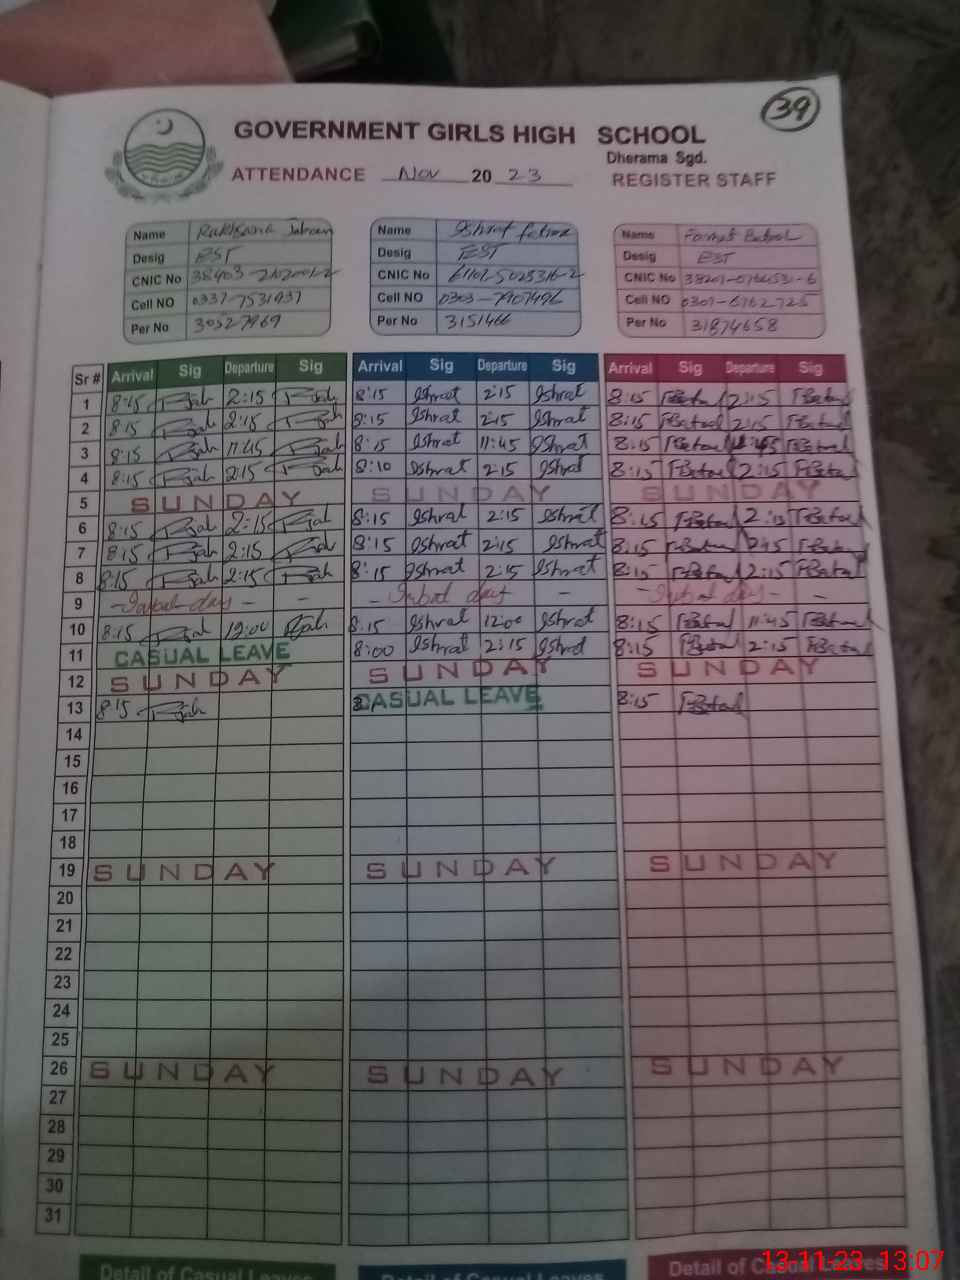 39
GOVERNMENT GIRLS HIGH SCHOOL
Dherama Sgd.
ATTENDANCE Nov 20 23 REGISTER STAFF
Name Name Ishrat Name
Desig EST Desig EST Desig EST
CNIC No CNIC No 61101-5025316-2 CNIC No
Cell NO 0337-7531937 Cell NO 0303-7907496 Cell NO 0301-6762725
Per No 30527969 Per No 3151466 Per No 31874658
Sr # Arrival Sig Departure Sig Arrival Sig Departure Sig Arrival Sig Departure Sig
1 8:15 2:15 8:15 Ishrat 2:15 Ishrat 8:15 FBatool 2:15 FBatool
2 8:15 2:15 8:15 Ishrat 2:15 Ishrat 8:15 FBatool 2:15 FBatool
3 8:15 11:45 8:15 Ishrat 11:45 Ishrat 8:15 FBatool 11:45 FBatool
4 8:15 2:15 8:10 Ishrat 2:15 Ishrat 8:15 FBatool 2:15 FBatool
5 SUNDAY SUNDAY SUNDAY
6 8:15 2:15 8:15 Ishrat 2:15 Ishrat 8:15 FBatool 2:15 FBatool
7 8:15 2:15 8:15 Ishrat 2:15 Ishrat 8:15 FBatool 2:15 FBatool
8 8:15 2:15 8:15 Ishrat 2:15 Ishrat 8:15 FBatool 2:15 FBatool
9 - Iqbal day - - - Iqbal day - - Iqbal day - -
10 8:15 12:00 8:15 Ishrat 12:00 Ishrat 8:15 FBatool 11:45 FBatool
11 CASUAL LEAVE 8:00 Ishrat 2:15 Ishrat 8:15 FBatool 2:15 FBatool
12 SUNDAY SUNDAY SUNDAY
13 8:15 CASUAL LEAVE 8:15 FBatool
14
15
16
17
18
19 SUNDAY SUNDAY SUNDAY
20
21
22
23
24
25
26 SUNDAY SUNDAY SUNDAY
27
28
29
30
31
Detail of Casual Leaves Detail of Casual Leaves Detail of Casual Leaves
13-11-23 13:07